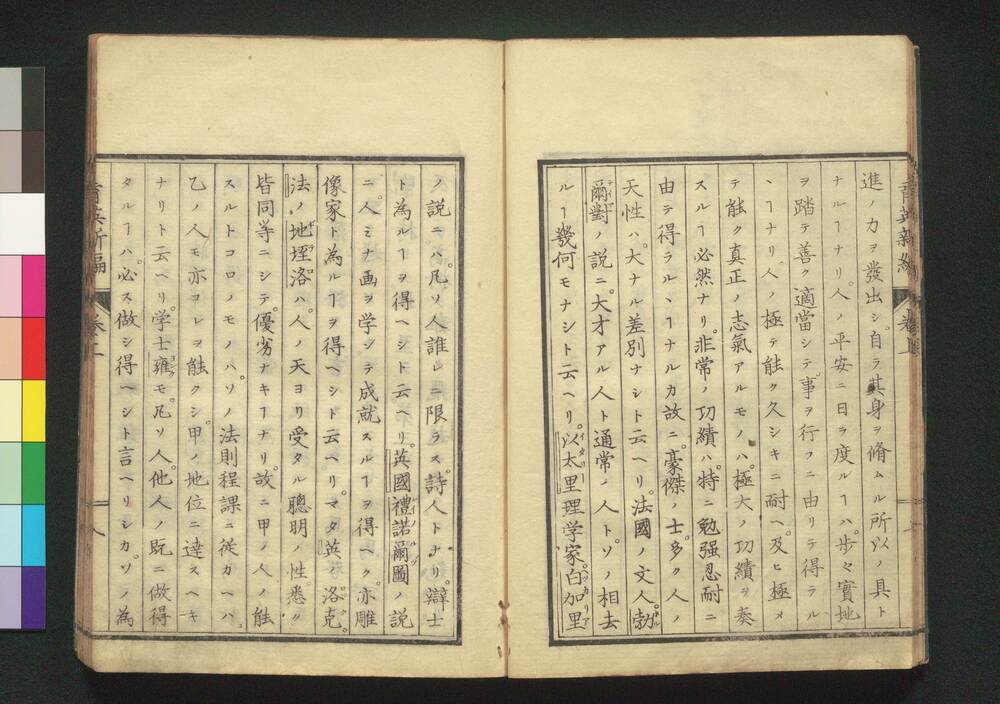 進ノ力ヲ發出シ。自ラ其身ヲ脩ムル所以ノ具ト
ナルヿナリ。人ノ平安ニ日ヲ度ルヿハ。歩々實地
ヲ踏テ善ク適當シテ事ヲ行フニ由リテ得ラル
ヽヿナリ人ノ極テ能ク久シキニ耐ヘ。及ヒ極メ
テ能ク真正ノ志氣アルモノハ。極大ノ功績ヲ奏
スルヿ必然ナリ。非常ノ功績ハ。特ニ勉强忍耐ニ
由テ得ラルヽヿナルカ故ニ。豪傑ノ士。多ク人ノ
天性ハ。大ナル差別ナシト云ヘリ。法國ノ文人勃
爾對ノ説ニ。大才アル人ト通常ノ人ト。ソノ相去
ルヿ幾何モナシト云ヘリ。以太里理学家。白加里
ノ説ニハ。凡ソ人誰レニ限ラス。詩人トナリ。辯士
ト為ルヿヲ得ヘシト云ヘリ。英國禮諾爾圖ノ説
ニ。人ミナ画ヲ学ンテ成就スルヿヲ得ヘク。亦雕
像家ト為ルヿヲ得ヘシト云ヘリ。マタ英ノ洛克。
法ノ地垤洛ハ。人ノ天ヨリ受タル聰明ノ性。悉ク
皆同等ニシテ。優劣ナキヿナリ。故ニ甲ノ人ノ能
スルトコロノモノハ。ソノ法則程課ニ從ガヘハ。
乙ノ人モ亦コレヲ能クシ。甲ノ地位ニ達スヘキ
ナリト云ヘリ。学士雍モ。凡ソ人。他人ノ既ニ做得
タルヿハ。必ス做シ得ヘシト言ヘリシカ。ソノ為